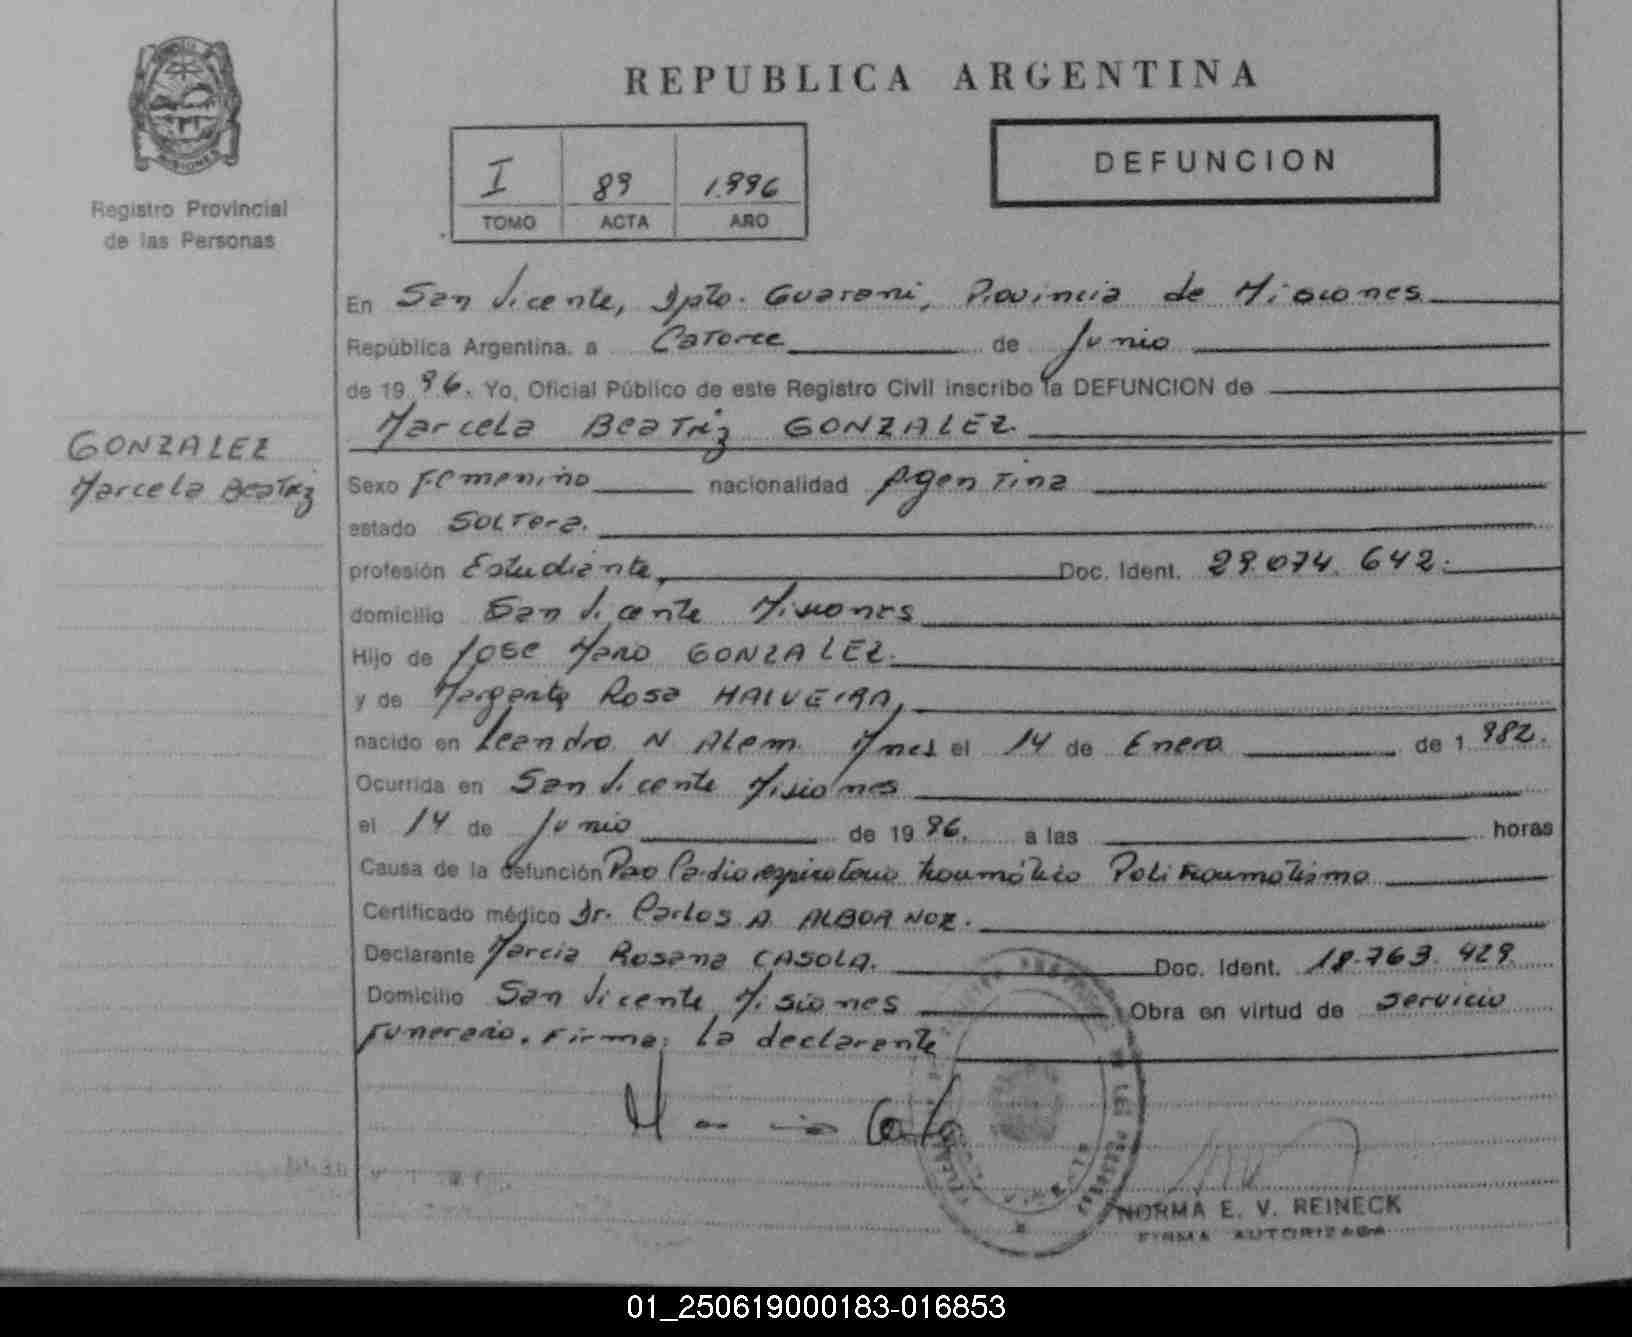 REPUBLICA ARGENTINA
MISIONES
Registro Provincial
de las Personas
I 89 1.996
TOMO ACTA AÑO
DEFUNCION
En San Vicente, Dpto. Guarani, Provincia de Misiones
República Argentina. a Catorce de Junio
de 1996. Yo, Oficial Público de este Registro Civil inscribo la DEFUNCION de
Marcela Beatriz GONZALEZ.
GONZALEZ
Marcela Beatriz
Sexo Femenino nacionalidad Agentina
estado Soltera.
profesión Estudiante, Doc. Ident. 29.074.642.
domicilio San Vicente Misiones
Hijo de Jose Mario GONZALEZ.
y de Margarita Rosa MALVEIRA,
nacido en Leandro N Alem. Mnes el 14 de Enero de 1982.
Ocurrida en San Vicente Misiones
el 14 de Junio de 1996. a las horas
Causa de la defunción Paro Cardiorespiratorio traumático Politraumatismo
Certificado médico Dr. Carlos A ALBORNOZ.
Declarante Marcia Rosana CASOLA. Doc. Ident. 18.763.429.
Domicilio San Vicente Misiones Obra en virtud de servicio
Funerario. Firma: la declarante
NORMA E. V. REINECK
FIRMA AUTORIZADA
01_250619000183-016853